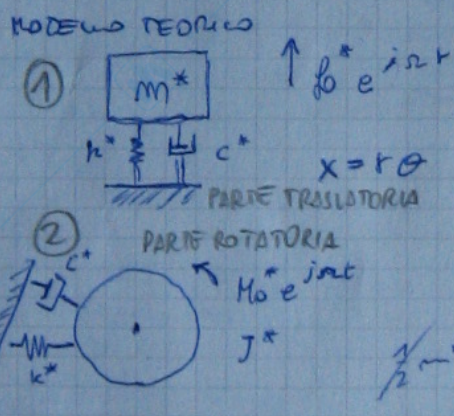 MODELLO TEORICO
①
m*
f₀* e^{jΩt}
k*
c*
x = rθ
PARTE TRASLATORIA
②
PARTE ROTATORIA
c*
M₀* e^{jΩt}
J*
k*